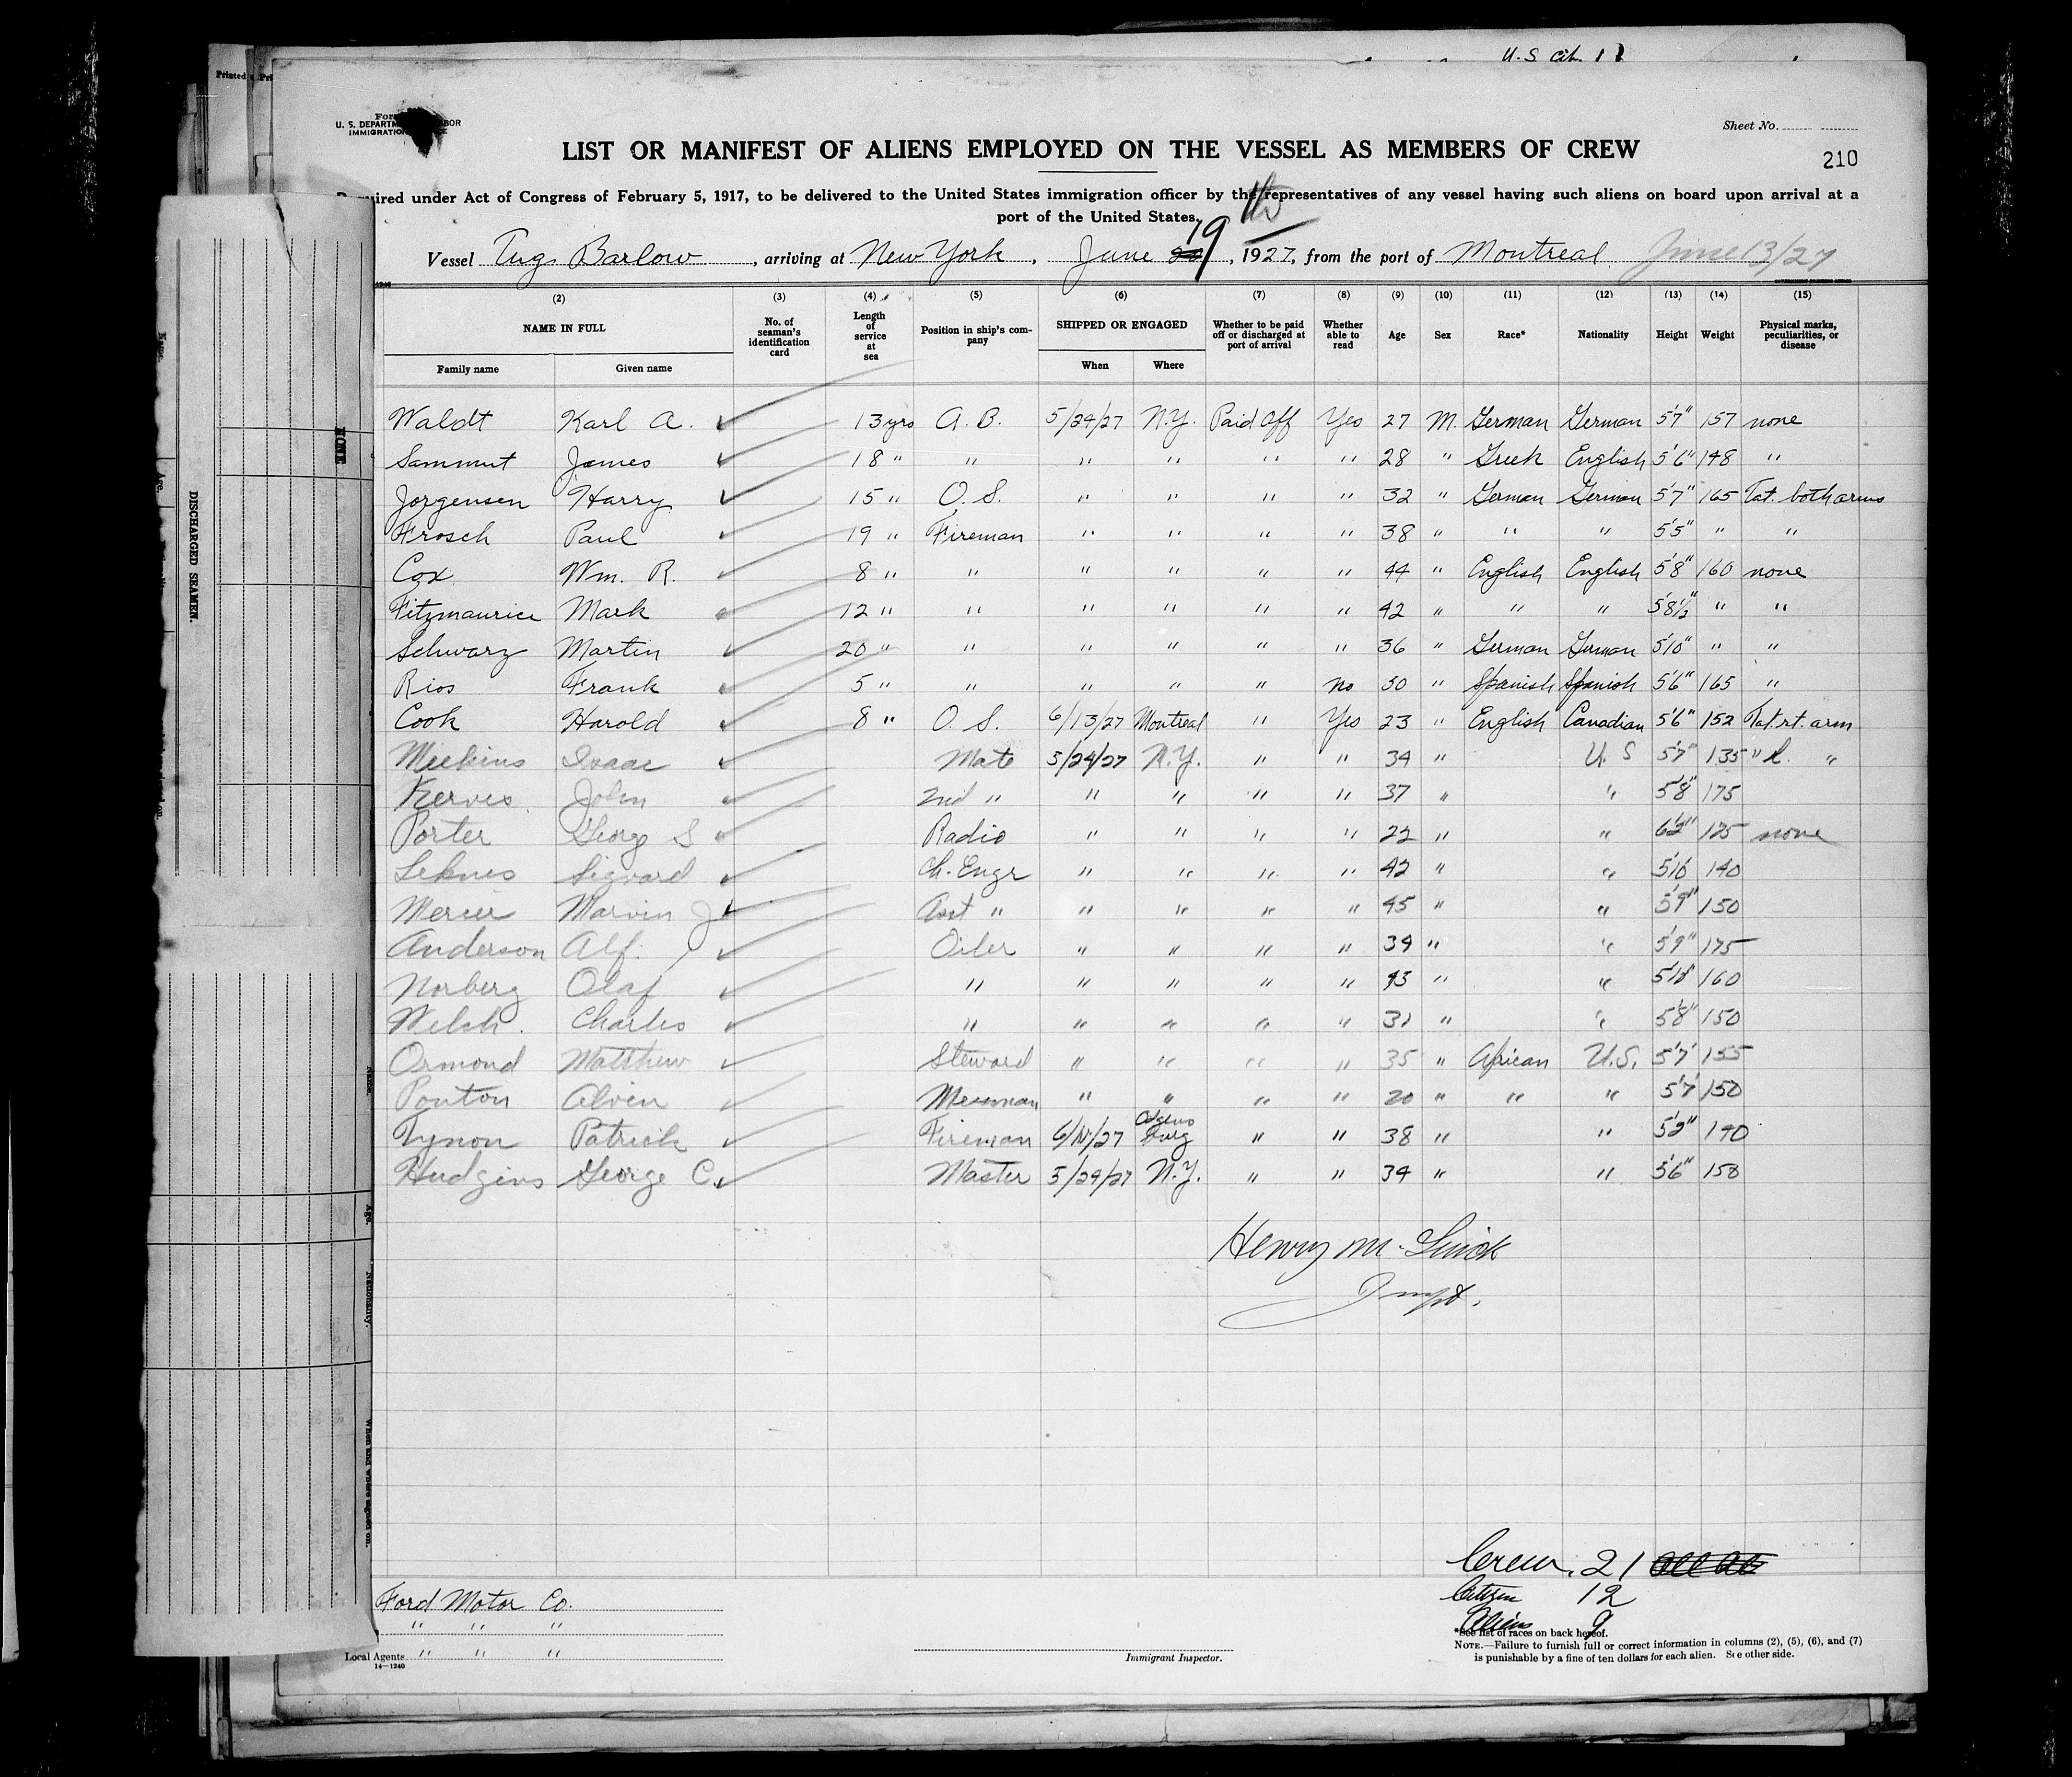 U.S. Cit. 11
Printed
U. S. DEPARTM ABOR
IMMIGRATION
Sheet No.
LIST OR MANIFEST OF ALIENS EMPLOYED ON THE VESSEL AS MEMBERS OF CREW
210
Required under Act of Congress of February 5, 1917, to be delivered to the United States immigration officer by the representatives of any vessel having such aliens on board upon arrival at a
port of the United States.
Vessel Tug Barlow, arriving at New York, June 19th, 1927, from the port of Montreal June 13/27
(2) (3) (4) (5) (6) (7) (8) (9) (10) (11) (12) (13) (14) (15)
NAME IN FULL No. of seaman's identification card Length of service at sea Position in ship's company SHIPPED OR ENGAGED Whether to be paid off or discharged at port of arrival Whether able to read Age Sex Race* Nationality Height Weight Physical marks, peculiarities, or disease
Family name Given name When Where
Waldt Karl A. 13 yrs A. B. 5/24/27 N.Y. Paid Off Yes 27 M. German German 5'7" 157 none
Sammut James 18 " " " " " " 28 " Greek English 5'6" 148 "
Jorgensen Harry 15 " O. S. " " " " 32 " German German 5'7" 165 Tat. both arms
Frosch Paul 19 " Fireman " " " " 38 " " " 5'5" " "
Cox Wm. R. 8 " " " " " " 44 " English English 5'8" 160 none
Fitzmaurice Mark 12 " " " " " " 42 " " " 5'8½" " "
Schwarz Martin 20 " " " " " " 36 " German German 5'10" " "
Rios Frank 5 " " " " " no 30 " Spanish Spanish 5'6" 165 "
Cook Harold 8 " O. S. 6/13/27 Montreal " Yes 23 " English Canadian 5'6" 152 Tat. rt. arm
Meekins Isaac Mate 5/24/27 N.Y. " " 34 " U. S 5'7" 135 " l. "
Kerves John 2nd " " " " " 37 " " 5'8" 175
Porter George S Radio " " " " 22 " " 6'2" 175 none
Leknes Sigvard Ch. Engr " " " " 42 " " 5'10" 140
Mercer Marvin J Asst " " " " " 45 " " 5'9" 150
Anderson Alf. Oiler " " " " 34 " " 5'9" 175
Norberg Olaf " " " " " 43 " " 5'10" 160
Welch Charles " " " " " 31 " " 5'8" 150
Ormond Matthew Steward " " " " 35 " African U.S. 5'7" 155
Ponton Alven Messman " " " " 20 " " " 5'7" 150
Tynon Patrick Fireman Ogdensburg " " 38 " " 5'2" 140
Hudgins George C. Master 5/24/27 N.Y. " " 34 " " 5'6" 158
Henry M.
Inspt.
NONE
DISCHARGED SEAMEN.
Name.
Age.
Nationality.
When and where signed on.
Crew. 21
Citizen 12
Aliens 9
Ford Motor Co.
" " "
Local Agents " " "
14—1240
Immigrant Inspector.
*See list of races on back hereof.
NOTE.—Failure to furnish full or correct information in columns (2), (5), (6), and (7)
is punishable by a fine of ten dollars for each alien. See other side.